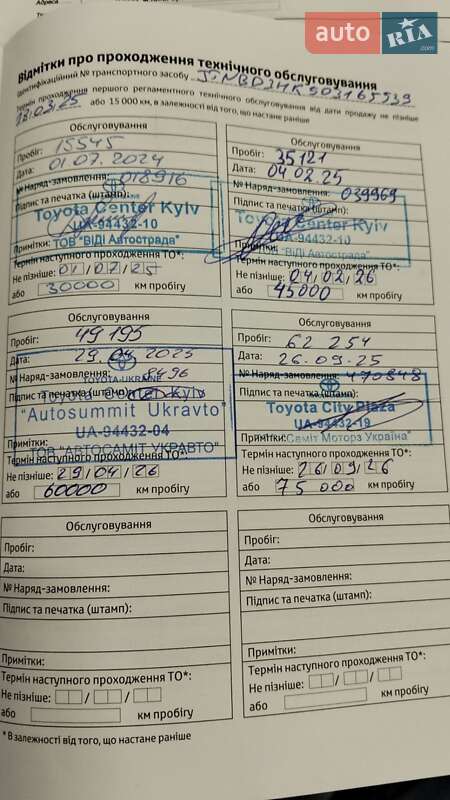 Адреса
auto RIA.com
Відмітки про проходження технічного обслуговування
Ідентифікаційний № транспортного засобу JTNBD3HK903165939
Термін проходження першого регламентного технічного обслуговування від дати продажу не пізніше
18.03.25 або 15 000 км, в залежності від того, що настане раніше
Обслуговування
Пробіг: 15545
Дата: 01.07.2024
№ Наряд-замовлення: 018916
Підпис та печатка (штамп):
Toyota Center Kyiv
UA-94432-10
Примітки: ТОВ "ВіДі Автострада"
Термін наступного проходження ТО*:
Не пізніше: 01/07/25
або 30000 км пробігу
Обслуговування
Пробіг: 35121
Дата: 04.02.25
№ Наряд-замовлення: 039969
Підпис та печатка (штамп):
Toyota Center Kyiv
UA-94432-10
Примітки: ТОВ "ВіДі Автострада"
Термін наступного проходження ТО*:
Не пізніше: 04/02/26
або 45000 км пробігу
Обслуговування
Пробіг: 49 195
Дата: 29.04 2025
№ Наряд-замовлення: 8496
TOYOTA-UKRAINE
Підпис та печатка (штамп):
Toyota Center Kyiv
"Autosummit Ukravto"
UA-94432-04
Примітки:
ТОВ "АВТОСАМІТ УКРАВТО"
Термін наступного проходження ТО*:
Не пізніше: 29/04/26
або 60000 км пробігу
Обслуговування
Пробіг: 62 254
Дата: 26.09.25
№ Наряд-замовлення: 470848
Підпис та печатка (штамп):
Toyota City Plaza
UA-94432-19
Примітки: "Саміт Моторз Україна"
Термін наступного проходження ТО*:
Не пізніше: 26/09/26
або 75 000 км пробігу
Обслуговування
Пробіг:
Дата:
№ Наряд-замовлення:
Підпис та печатка (штамп):
Примітки:
Термін наступного проходження ТО*:
Не пізніше:
або км пробігу
Обслуговування
Пробіг:
Дата:
№ Наряд-замовлення:
Підпис та печатка (штамп):
Примітки:
Термін наступного проходження ТО*:
Не пізніше:
або км пробігу
* В залежності від того, що настане раніше